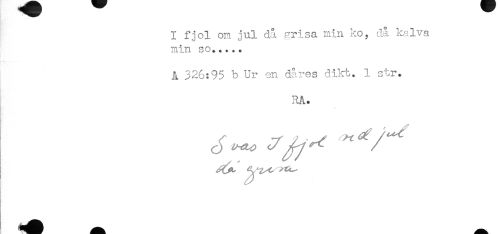 I fjol om jul då grisa min ko, då kalva
min so.....
A 326:95 b Ur en dåres dikt. 1 str.
RA.
S vas I fjol ved jul
då grisa